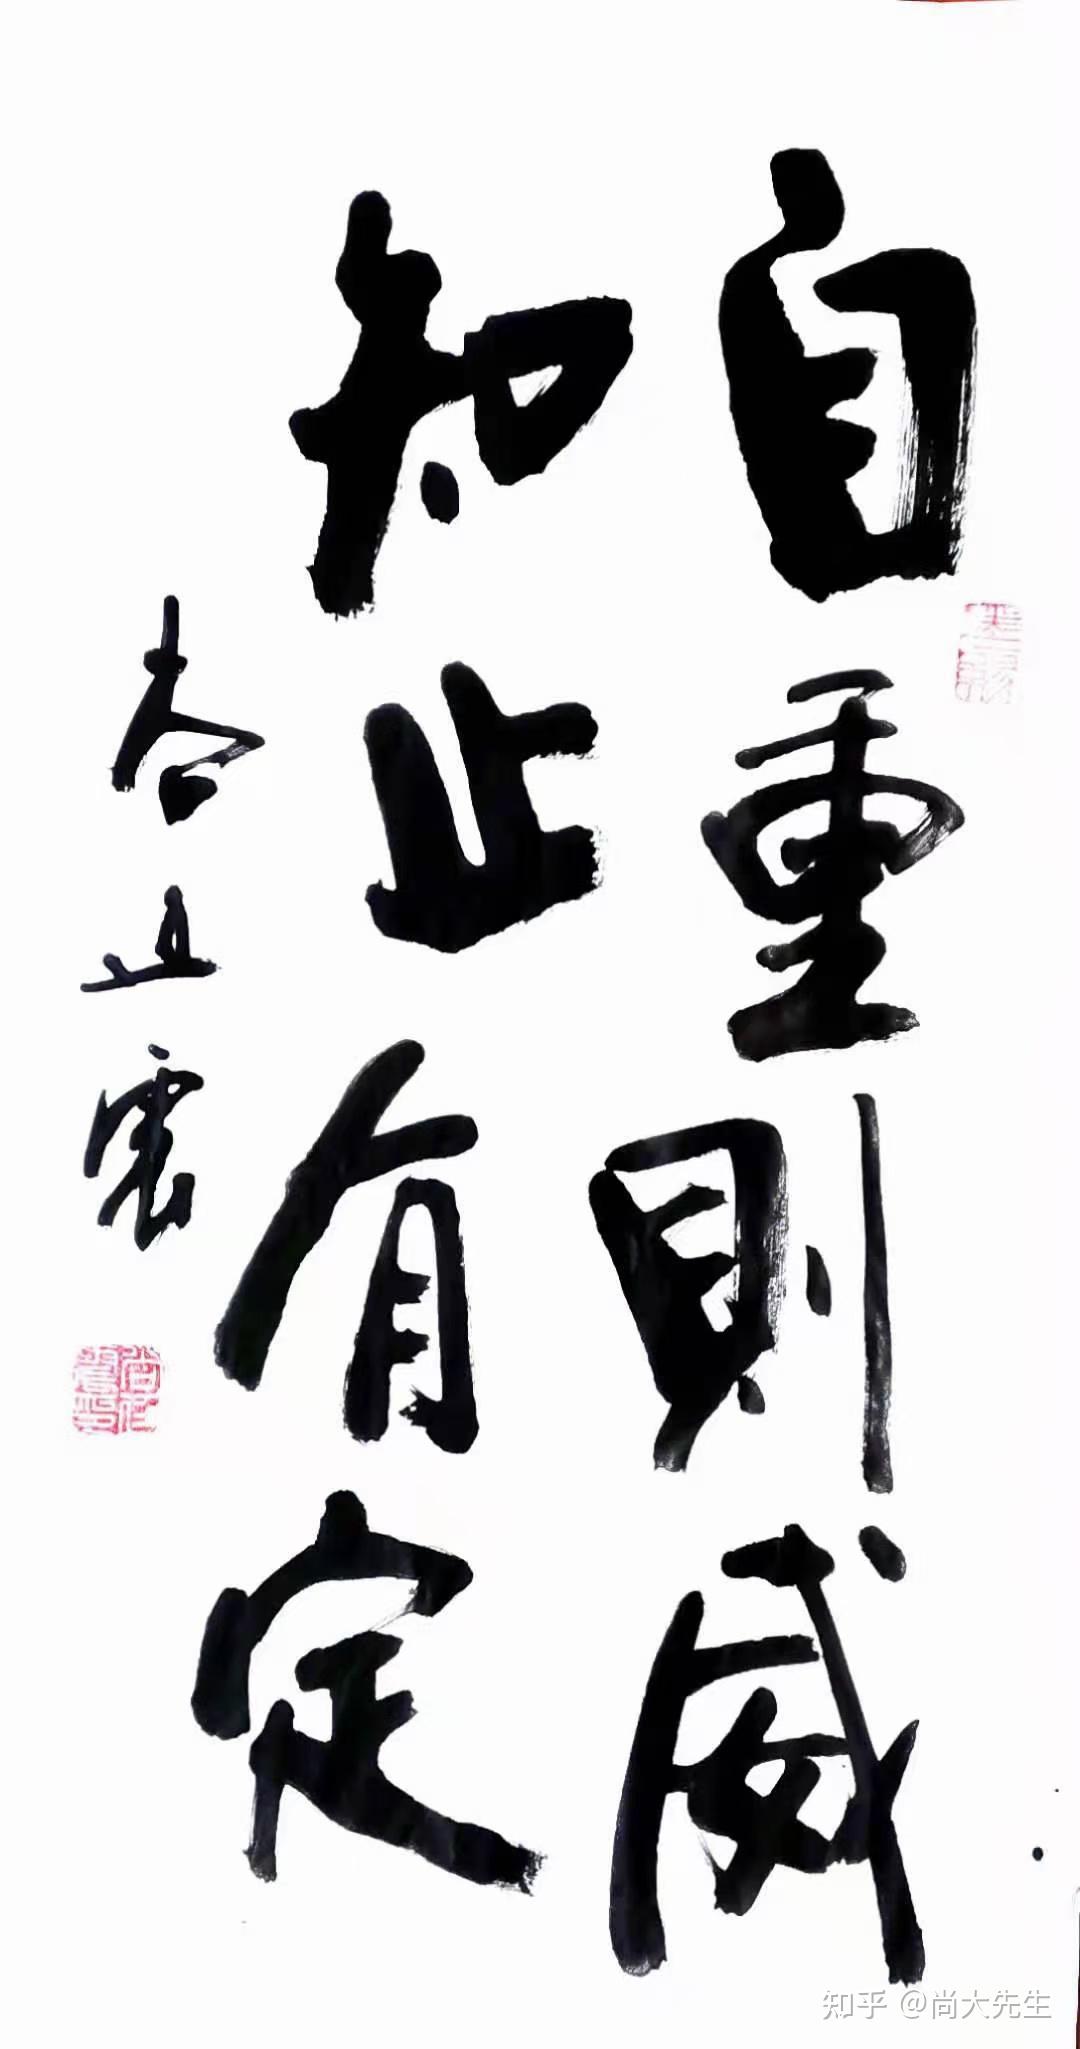 自重則威
知止有定
知乎 @尚大先生